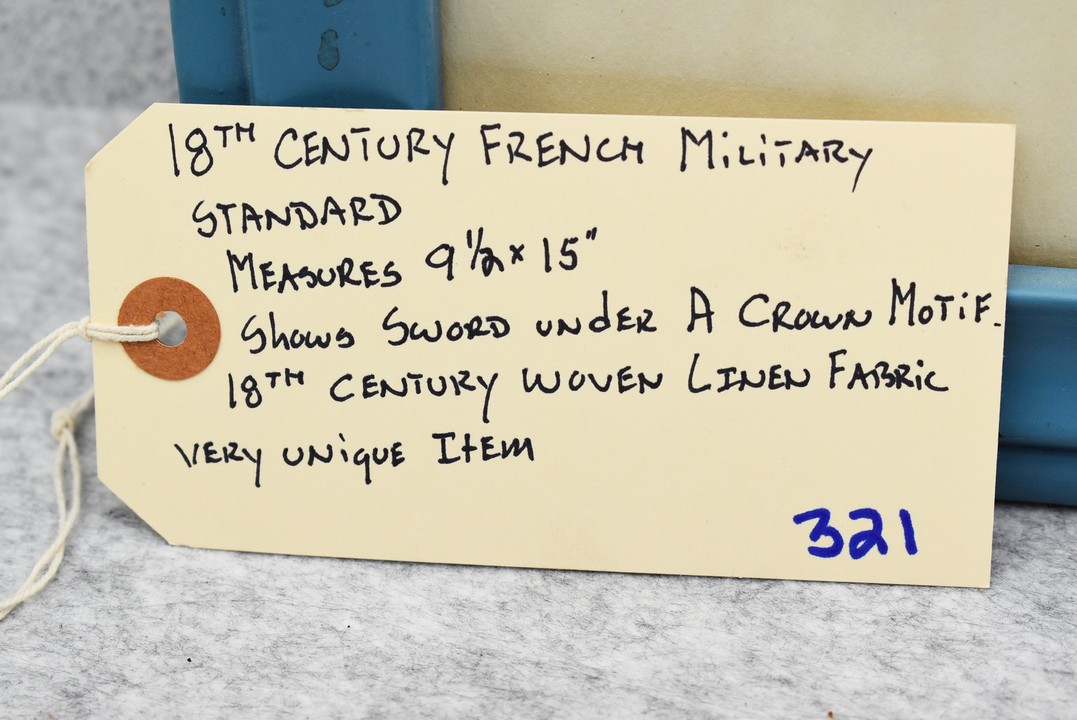 18TH CENTURY FRENCH MILITARY
STANDARD
MEASURES 9 1/2 x 15"
Shows SWORD UNDER A CROWN MOTIF.
18TH CENTURY WOVEN LINEN FABRIC
VERY UNIQUE ITEM
321